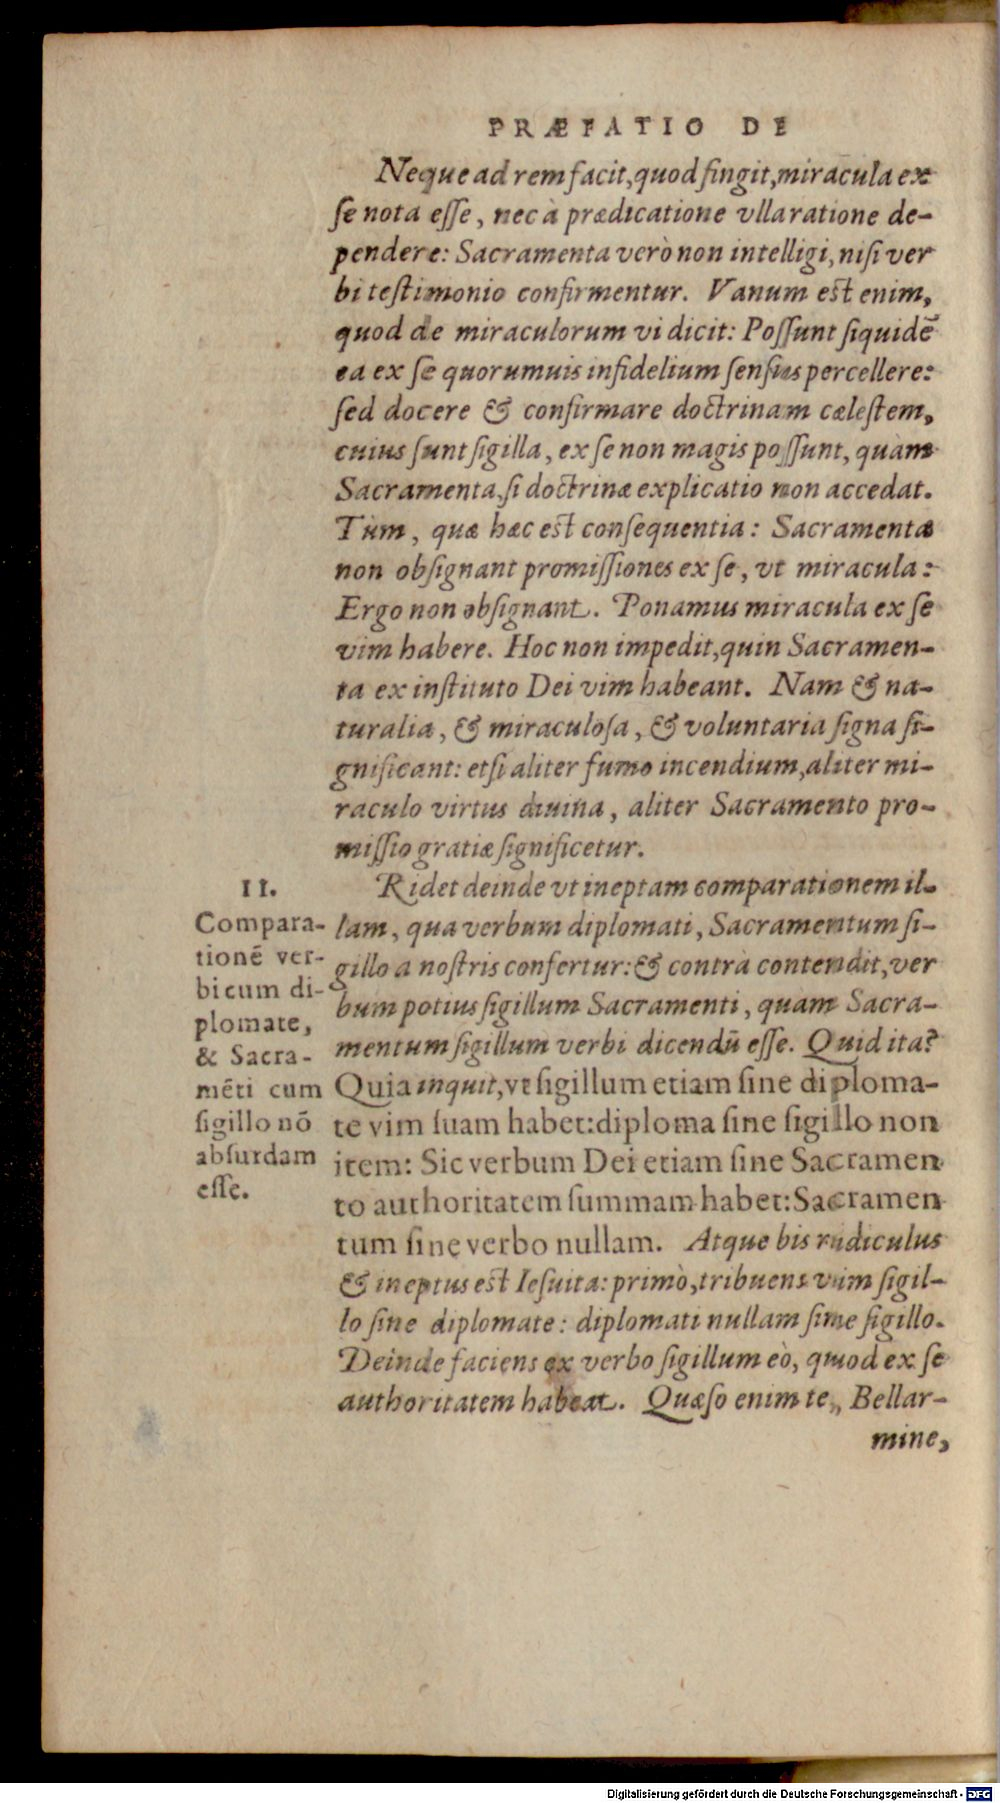 PRÆFATIO DE
Neque ad rem facit, quod fingit, miracula ex
ſe nota eſſe, nec à prædicatione vlla ratione de-
pendere: Sacramenta verò non intelligi, niſi ver
bi teſtimonio confirmentur. Vanum eſt enim,
quod de miraculorum vi dicit: Poſſunt ſiquidē
ea ex ſe quorumuis infidelium ſenſus percellere:
ſed docere & confirmare doctrinam cæleſtem,
cuius ſunt ſigilla, ex ſe non magis poſſunt, quàm
Sacramenta, ſi doctrinæ explicatio non accedat.
Tùm, quæ hæc eſt conſequentia: Sacramenta
non obſignant promiſſiones ex ſe, vt miracula:
Ergo non obſignant. Ponamus miracula ex ſe
vim habere. Hoc non impedit, quin Sacramen-
ta ex inſtituto Dei vim habeant. Nam & na-
turalia, & miraculoſa, & voluntaria ſigna ſi-
gnificant: etſi aliter fumo incendium, aliter mi-
raculo virtus diuina, aliter Sacramento pro-
miſſio gratiæ ſignificetur.
II.
Compara-
tionē ver-
bi cum di-
plomate,
& Sacra-
mēti cum
ſigillo nō
abſurdam
eſſe.
Ridet deinde vt ineptam comparationem il-
lam, qua verbum diplomati, Sacramentum ſi-
gillo a noſtris confertur: & contrà contendit, ver
bum potius ſigillum Sacramenti, quam Sacra-
mentum ſigillum verbi dicendū eſſe. Quid ita?
Quia inquit, vt ſigillum etiam ſine diploma-
te vim ſuam habet: diploma ſine ſigillo non
item: Sic verbum Dei etiam ſine Sacramen
to authoritatem ſummam habet: Sacramen
tum ſine verbo nullam. Atque bis ridiculus
& ineptus eſt Ieſuita: primò, tribuens vim ſigil-
lo ſine diplomate: diplomati nullam ſine ſigillo.
Deinde faciens ex verbo ſigillum eò, quod ex ſe
authoritatem habeat. Quæſo enim te, Bellar-
mine,
Digitalisierung gefördert durch die Deutsche Forschungsgemeinschaft - DFG